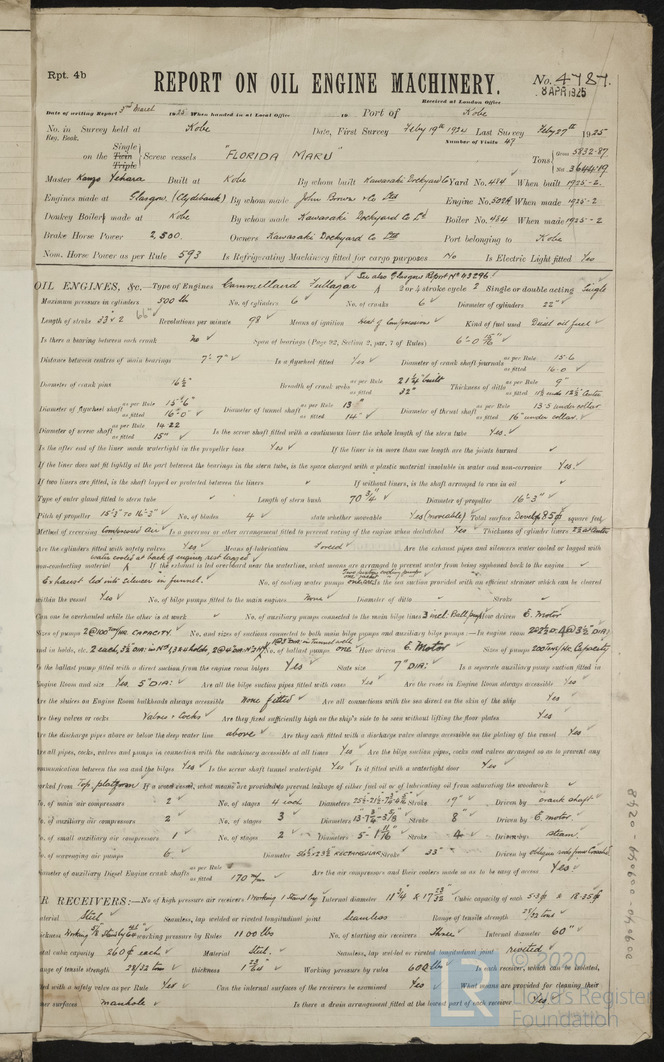 Rpt. 4b
REPORT ON OIL ENGINE MACHINERY.
No. 4787.
8 APR 1925
Received at London Office
Date of writing Report 3rd March 1925 When handed in at Local Office 19 Port of Kobe
No. in Survey held at Kobe Date, First Survey Feby 19th 1924 Last Survey Feby 27th 1925
Reg. Book. Number of Visits 47
on the Single Twin Triple Screw vessels "FLORIDA MARU" Tons Gross 5832.87 Net 3644.19
Master Kenzo Uehara Built at Kobe By whom built Kawasaki Dockyard Co Yard No. 484 When built 1925-2.
Engines made at Glasgow. (Clydebank) By whom made John Brown & Co Ltd Engine No. 502A When made 1925-2
Donkey Boilers made at Kobe By whom made Kawasaki Dockyard Co Ld Boiler No. 484 When made 1925-2
Brake Horse Power 2,500 Owners Kawasaki Dockyard Co Ltd Port belonging to Kobe
Nom. Horse Power as per Rule 593 Is Refrigerating Machinery fitted for cargo purposes No Is Electric Light fitted Yes
See also Glasgow Report No 43296
OIL ENGINES, &c.—Type of Engines Cammellaird Fullagar 2 or 4 stroke cycle 2 Single or double acting Single
Maximum pressure in cylinders 500 lb No. of cylinders 6 No. of cranks 6 Diameter of cylinders 22"
Length of stroke 33 x 2 66" Revolutions per minute 98 Means of ignition Heat of Compression Kind of fuel used Diesel oil fuel
Is there a bearing between each crank no Span of bearings (Page 92, Section 2, par. 7 of Rules)
Distance between centres of main bearings 7'-7" Is a flywheel fitted Yes Diameter of crank shaft journals as per Rule 15.6 as fitted 16.0
Diameter of crank pins 16½" Breadth of crank webs as per Rule 21¼" built as fitted 32" Thickness of ditto as per Rule 9"
Diameter of flywheel shaft as per Rule as fitted Diameter of tunnel shaft as per Rule as fitted 14" Diameter of thrust shaft as per Rule 13.5 under collar as fitted 16" under collar.
Diameter of screw shaft as per Rule 14.22 as fitted 15" Is the screw shaft fitted with a continuous liner the whole length of the stern tube Yes.
Is the after end of the liner made watertight in the propeller boss Yes If the liner is in more than one length are the joints burned
If the liner does not fit tightly at the part between the bearings in the stern tube, is the space charged with a plastic material insoluble in water and non-corrosive Yes.
If two liners are fitted, is the shaft lapped or protected between the liners If without liners, is the shaft arranged to run in oil
Type of outer gland fitted to stern tube Length of stern bush 70 ¾" Diameter of propeller 16'-3"
Pitch of propeller No. of blades 4 state whether moveable Yes (moveable) Total surface square feet
Method of reversing Compressed air Is a governor or other arrangement fitted to prevent racing of the engine when declutched Yes Thickness of cylinder liners
Are the cylinders fitted with safety valves Yes Means of lubrication forced Are the exhaust pipes and silencers water cooled or lagged with
non-conducting material water cooled at back of engines, rest lagged If the exhaust is led overboard near the waterline, what means are arranged to prevent water from being syphoned back to the engine
Exhaust led into silencer in funnel. No. of cooling water pumps Is the sea suction provided with an efficient strainer which can be cleared
within the vessel Yes No. of bilge pumps fitted to the main engines None Diameter of ditto Stroke
Can one be overhauled while the other is at work No. of auxiliary pumps connected to the main bilge lines How driven E. Motor
Sizes of pumps 2 @ 100 CAPACITY No. and sizes of suctions connected to both main bilge pumps and auxiliary bilge pumps:—In engine room
and in holds, etc. No. of ballast pumps one How driven E. Motor Sizes of pumps 200 Tons/Hr. Capacity
Is the ballast pump fitted with a direct suction from the engine room bilges Yes State size 7" DIA: Is a separate auxiliary pump suction fitted in
Engine Room and size Yes 5" DIA: Are all the bilge suction pipes fitted with roses Yes Are the roses in Engine Room always accessible Yes
Are the sluices on Engine Room bulkheads always accessible None fitted Are all connections with the sea direct on the skin of the ship Yes
Are they valves or cocks Valves & Cocks Are they fixed sufficiently high on the ship's side to be seen without lifting the floor plates Yes
Are the discharge pipes above or below the deep water line above Are they each fitted with a discharge valve always accessible on the plating of the vessel Yes
Are all pipes, cocks, valves and pumps in connection with the machinery accessible at all times Yes Are the bilge suction pipes, cocks and valves arranged so as to prevent any
communication between the sea and the bilges Yes Is the screw shaft tunnel watertight Yes Is it fitted with a watertight door Yes
worked from Top platform If a wood vessel, what means are provided to prevent leakage of either fuel oil or of lubricating oil from saturating the woodwork
No. of main air compressors 2 No. of stages 4 each Diameters Stroke 19" Driven by crank shaft
No. of auxiliary air compressors 2 No. of stages 3 Diameters Stroke 8" Driven by E. motor
No. of small auxiliary air compressors 1 No. of stages 2 Diameters Stroke 4 Driven by steam.
No. of scavenging air pumps 6 Diameter Stroke 33" Driven by
Diameter of auxiliary Diesel Engine crank shafts as per Rule as fitted 170 m/m Are the air compressors and their coolers made so as to be easy of access Yes
AIR RECEIVERS:—No. of high pressure air receivers 1 working 1 Stand by Internal diameter Cubic capacity of each
material Steel Seamless, lap welded or riveted longitudinal joint Seamless Range of tensile strength
thickness working pressure by Rules 1100 lbs No. of starting air receivers Three Internal diameter 60"
total cubic capacity Material Steel. Seamless, lap welded or riveted longitudinal joint riveted
range of tensile strength 28/32 ton thickness Working pressure by rules 600 lbs Is each receiver, which can be isolated,
fitted with a safety valve as per Rule Yes Can the internal surfaces of the receivers be examined Yes What means are provided for cleaning their
inner surfaces manhole Is there a drain arrangement fitted at the lowest part of each receiver Yes
© 2020
LR
Lloyd's Register
Foundation